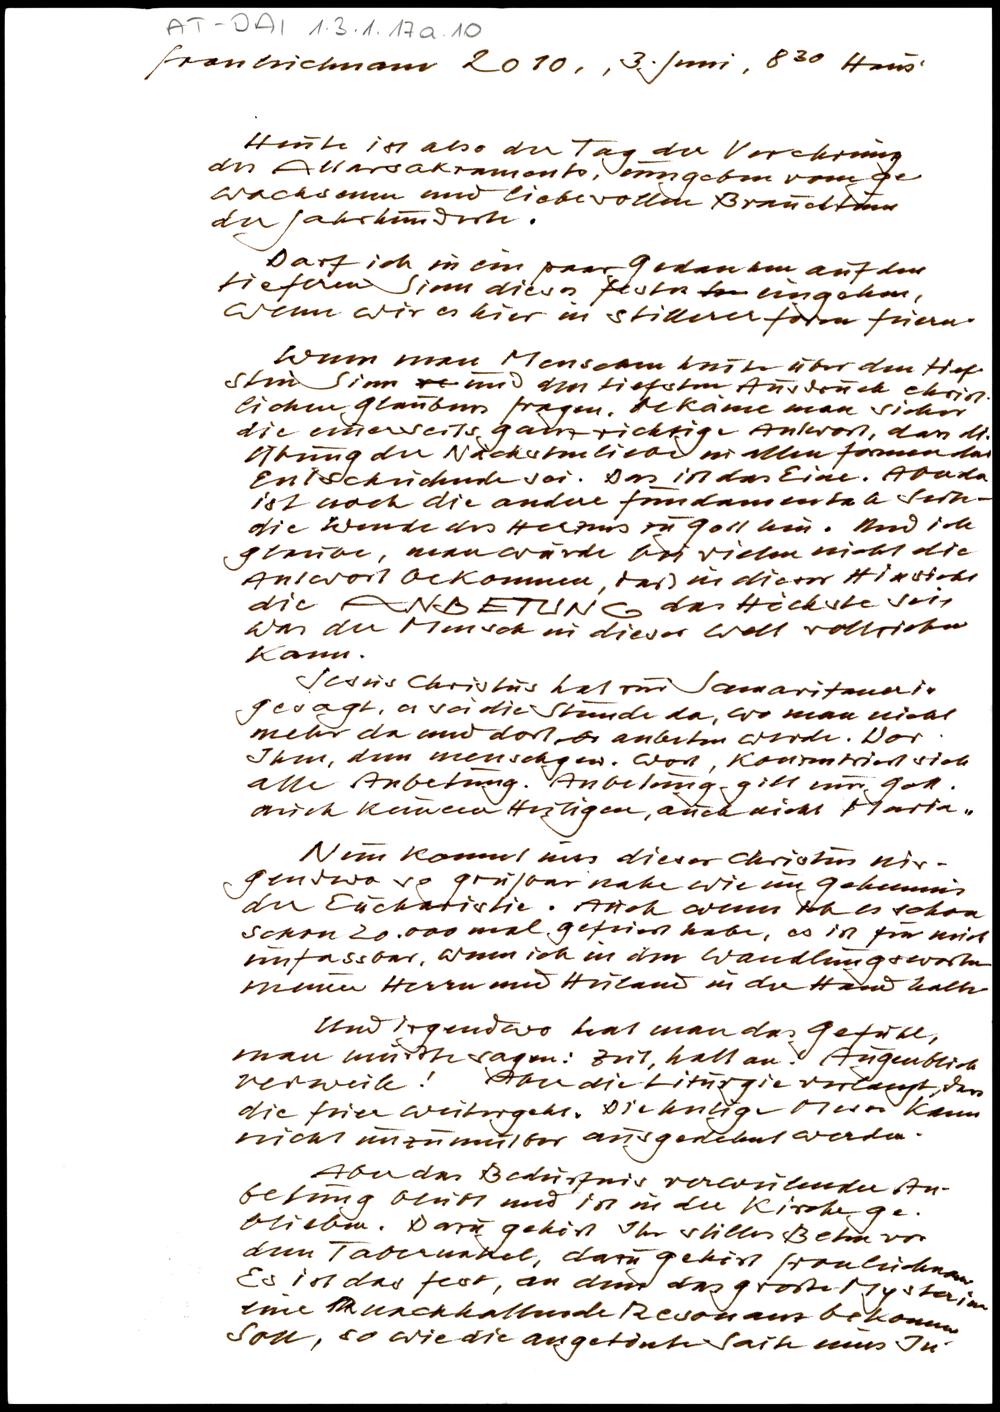 AT-DAI 1.3.1.17a.10
Fronleichnam 2010, 3. Juni, 8 30 Haus
Heute ist also der Tag der Verehrung
des Altarsakraments, umgeben vom ge
wachsenen und liebevollen Brauchtum
der Jahrhunderte.
Darf ich in ein paar Gedanken auf den
tieferen Sinn dieses Festes eingehen,
wenn wir es hier in stillerer Form feiern.
Wenn man Menschen heute über den tief
sten Sinn und den tiefsten Ausdruck christ-
lichen Glaubens fragen, bekäme man sicher
die einerseits ganz richtige Antwort, dass di
Übung der Nächstenliebe in allen Formen das
Entscheidende sei. Das ist das Eine. Aber da
ist noch die andere fundamentale Seite
die Wende des Herzens zu Gott hin. Und ich
glaube, man würde bei vielen nicht die
Antwort bekommen, daß in dieser Hinsicht
die ANBETUNG das Höchste sei,
was der Mensch in dieser Welt vollziehen
kann.
Jesus Christus hat zur Samariterin
gesagt, es sei die Stunde da, wo man nicht
mehr da und dort anbeten werde. Vor
Ihm, dem menschgew. Wort, konzentriert sich
alle Anbetung. Anbetung gilt nur Gott.
auch keinem Heiligen, auch nicht Maria.
Nun kommt uns dieser Christus nir-
gendwo so greifbar nahe wie im Geheimnis
der Eucharistie. Auch wenn ich es schon
schon 20.000 mal gefeiert habe, es ist für mich
unfassbar, wenn ich in den Wandlungsworten
meinen Herrn und Heiland in der Hand halte
Und irgendwo hat man das Gefühl,
man müsste sagen: Zeit, halt an! Augenblick
verweile! Aber die Liturgie verlangt, dass
die Feier weitergeht. Die heilige Messe kann
nicht unzumutbar ausgedehnt werden.
Aber das Bedürfnis verweilender An-
betung bleibt und ist in der Kirche ge-
blieben. Dazu gehört Ihr stilles Beten vor
dem Tabernakel, dazu gehört Fronleichnam
Es ist das Fest, an dem das große Mysterium
eine nachhallende Resonanz bekommen
soll, so wie die angetönte Saite eines In-